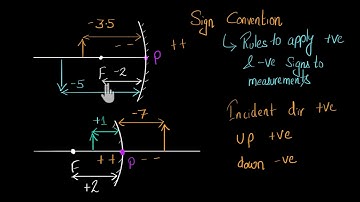 Sign Convention
-3.5
-- ++
Rules to apply +ve
P
& -ve Signs to
F -2
measurements
-5
Incident dir +ve
+1 -7
up +ve
F ++ P --
down -ve
+2